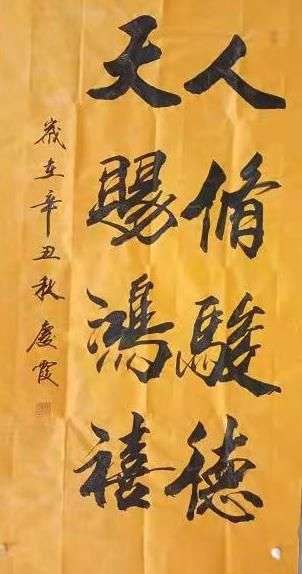 人脩駿德
天賜鴻禧
歲在辛丑秋慶霞